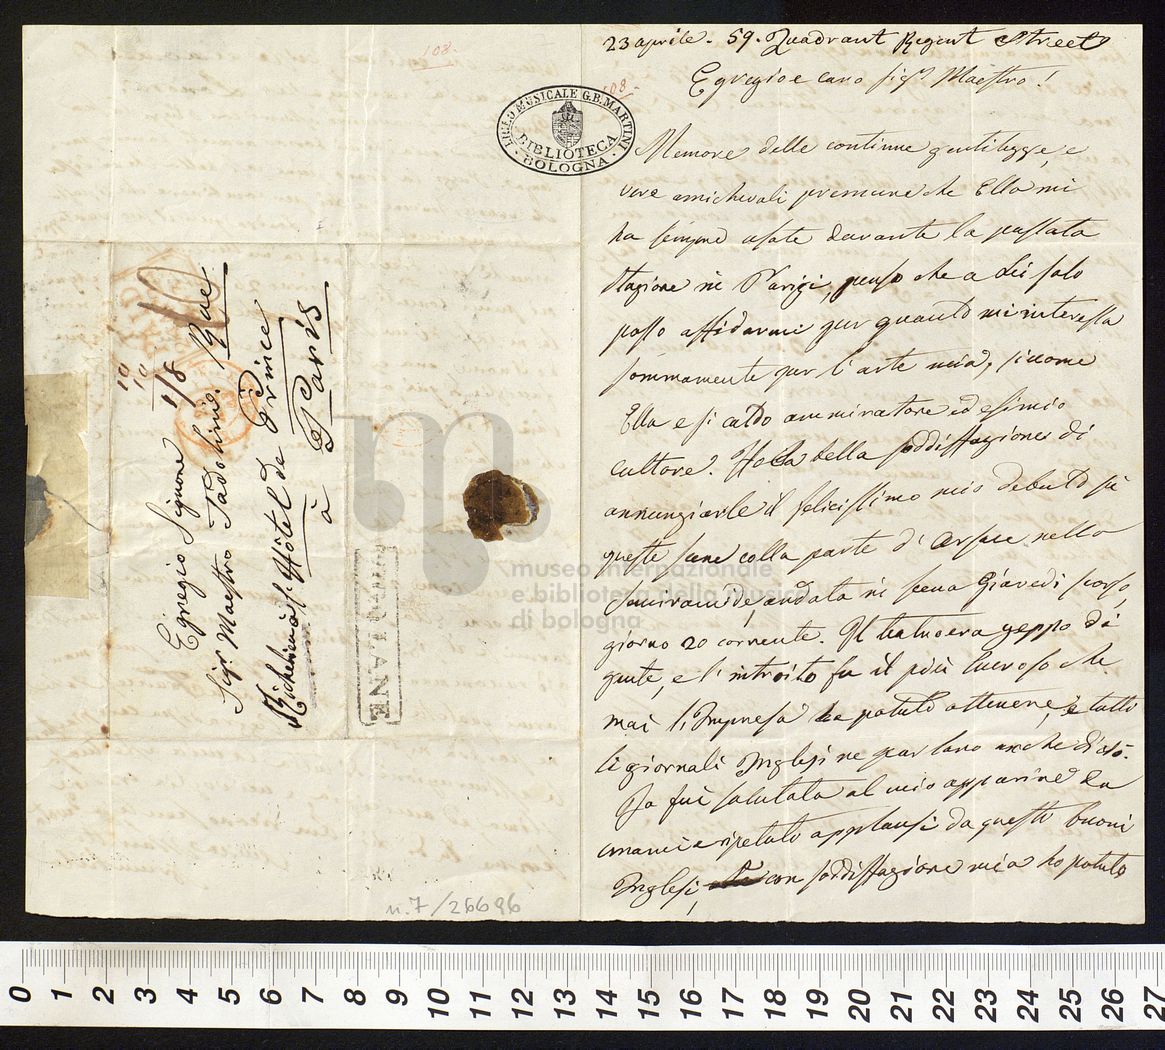 108.
108.
LICEO MUSICALE G.B. MARTINI
BIBLIOTECA
BOLOGNA
Egregio Signore
Sigr. Maestro Tadolini.
Richelieu Hôtel de Prince
Rue
à Paris
1/8
n. 7/26696
museo internazionale
e biblioteca della musica
di bologna
23 aprile. 59. Quadrant Regent Street
Egregio e caro sigr. Maestro!
Memore delle continue gentilezze, e
vere amichevoli premure che Ella mi
ha sempre usate durante la passata
stagione in Parigi, penso che a Lei solo
posso affidarmi per quanto mi interessa
sommamente per l'arte mia, siccome
Ella e sì caldo ammiratore ed esimio
cultore. Ho la bella soddisfazione di
annunziarle il felicissimo mio debutto su
queste scene colla parte d'Arsace nella
Semiramide, andata in scena Giovedì scorso,
giorno 20 corrente. Il teatro era zeppo di
gente, e l'introito fu il più lucroso che
mai l'Impresa ha potuto ottenere, e tutti
li giornali Inglesi ne parlano anche di ciò.
Io fui salutata al mio apparire da
unanimi e ripetuti applausi da questi buoni
Inglesi, con soddisfazione mia ho potuto
0 1 2 3 4 5 6 7 8 9 10 11 12 13 14 15 16 17 18 19 20 21 22 23 24 25 26 27